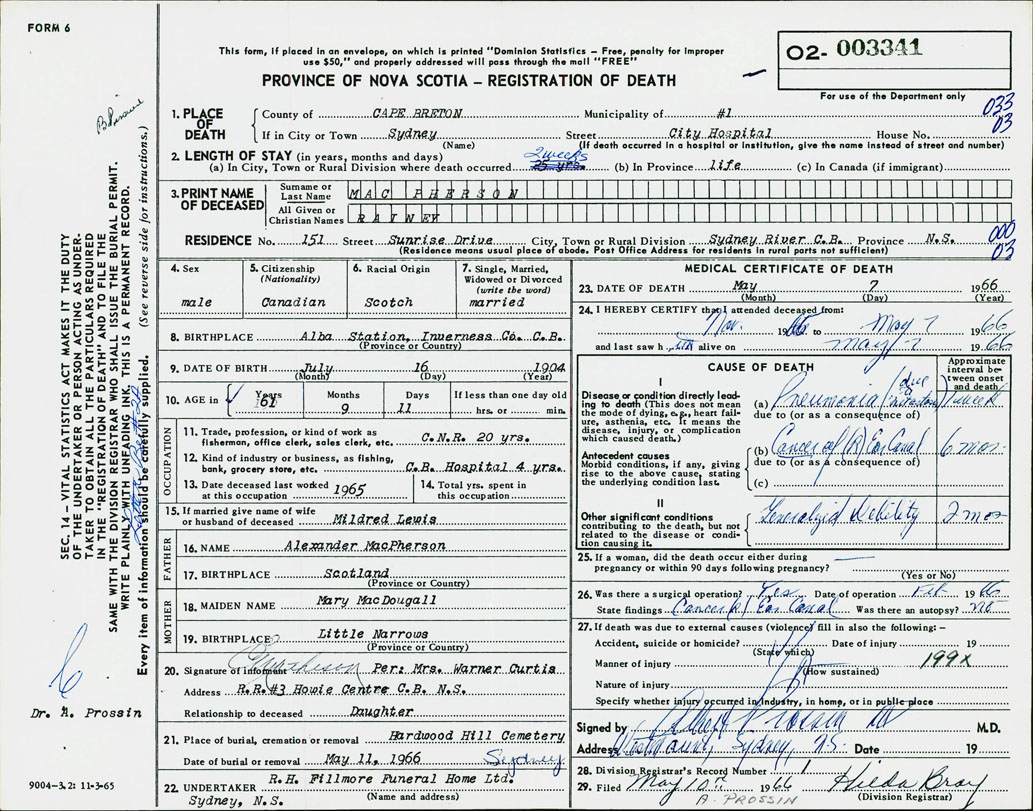 FORM 6
This form, if placed in an envelope, on which is printed "Dominion Statistics – Free, penalty for improper
use $50," and properly addressed will pass through the mail "FREE"
PROVINCE OF NOVA SCOTIA – REGISTRATION OF DEATH
02- 003341
For use of the Department only
033
03
1. PLACE OF DEATH
County of CAPE BRETON Municipality of #1
If in City or Town Sydney Street City Hospital House No.
(Name) (If death occurred in a hospital or institution, give the name instead of street and number)
2. LENGTH OF STAY (in years, months and days) 2 weeks
(a) In City, Town or Rural Division where death occurred 25 yrs. (b) In Province life (c) In Canada (if immigrant)
3. PRINT NAME OF DECEASED
Surname or Last Name MAC PHERSON
All Given or Christian Names RAINEY
RESIDENCE No. 151 Street Sunrise Drive City, Town or Rural Division Sydney River C.B. Province N.S.
(Residence means usual place of abode. Post Office Address for residents in rural parts not sufficient)
000
03
4. Sex
male
5. Citizenship
(Nationality)
Canadian
6. Racial Origin
Scotch
7. Single, Married,
Widowed or Divorced
(write the word)
married
8. BIRTHPLACE Alba Station, Inverness Co. C.B.
(Province or Country)
9. DATE OF BIRTH July 16 1904
(Month) (Day) (Year)
10. AGE in
Years 61
Months 9
Days 11
If less than one day old
hrs. or min.
OCCUPATION
11. Trade, profession, or kind of work as
fisherman, office clerk, sales clerk, etc. C.N.R. 20 yrs.
12. Kind of industry or business, as fishing,
bank, grocery store, etc. C.B. Hospital 4 yrs.
13. Date deceased last worked
at this occupation 1965
14. Total yrs. spent in
this occupation
15. If married give name of wife
or husband of deceased Mildred Lewis
FATHER
16. NAME Alexander MacPherson
17. BIRTHPLACE Scotland
(Province or Country)
MOTHER
18. MAIDEN NAME Mary MacDougall
19. BIRTHPLACE Little Narrows
(Province or Country)
20. Signature of informant Per: Mrs. Warner Curtis
Address R.R.#3 Howie Centre C.B. N.S.
Relationship to deceased Daughter
21. Place of burial, cremation or removal Hardwood Hill Cemetery
Date of burial or removal May 11, 1966 Sydney
22. UNDERTAKER R.H. Fillmore Funeral Home Ltd.
Sydney, N.S. (Name and Address)
MEDICAL CERTIFICATE OF DEATH
23. DATE OF DEATH May 7 1966
(Month) (Day) (Year)
24. I HEREBY CERTIFY that I attended deceased from:
Nov. 19 to May 7 1966
and last saw him alive on May 7 1966
CAUSE OF DEATH
Approximate interval between onset and death
I
Disease or condition directly leading to death (This does not mean the mode of dying, e.g., heart failure, asthenia, etc. It means the disease, injury, or complication which caused death.)
(a) Pneumonia 1 week
due to (or as a consequence of)
Antecedent causes
Morbid conditions, if any, giving rise to the above cause, stating the underlying condition last.
(b) Cancer of (R) Ear Canal 6 mos.
due to (or as a consequence of)
(c)
II
Other significant conditions
contributing to the death, but not related to the disease or condition causing it.
Generalized debility 2 mos
25. If a woman, did the death occur either during
pregnancy or within 90 days following pregnancy?
(Yes or No)
26. Was there a surgical operation? Yes Date of operation Feb 1966
State findings Cancer R/ Ear Canal Was there an autopsy? no
27. If death was due to external causes (violence) fill in also the following: –
Accident, suicide or homicide? Date of injury 19
(State which)
Manner of injury 199X
(How sustained)
Nature of injury
Specify whether injury occurred in industry, in home, or in public place
Signed by Prossin M.D.
Address Sydney, N.S. Date 19
28. Division Registrar's Record Number
29. Filed May 10 1966 Hilda Bray
A. PROSSIN (Division Registrar)
SEC. 14 – VITAL STATISTICS ACT MAKES IT THE DUTY
OF THE UNDERTAKER OR PERSON ACTING AS UNDER-
TAKER TO OBTAIN ALL THE PARTICULARS REQUIRED
IN THE "REGISTRATION OF DEATH" AND TO FILE THE
SAME WITH THE DIVISION REGISTRAR WHO SHALL ISSUE THE BURIAL PERMIT.
WRITE PLAINLY WITH UNFADING INK. THIS IS A PERMANENT RECORD.
Every item of information should be carefully supplied. (See reverse side for instructions.)
Dr. A. Prossin
9004-3.2: 11-3-65